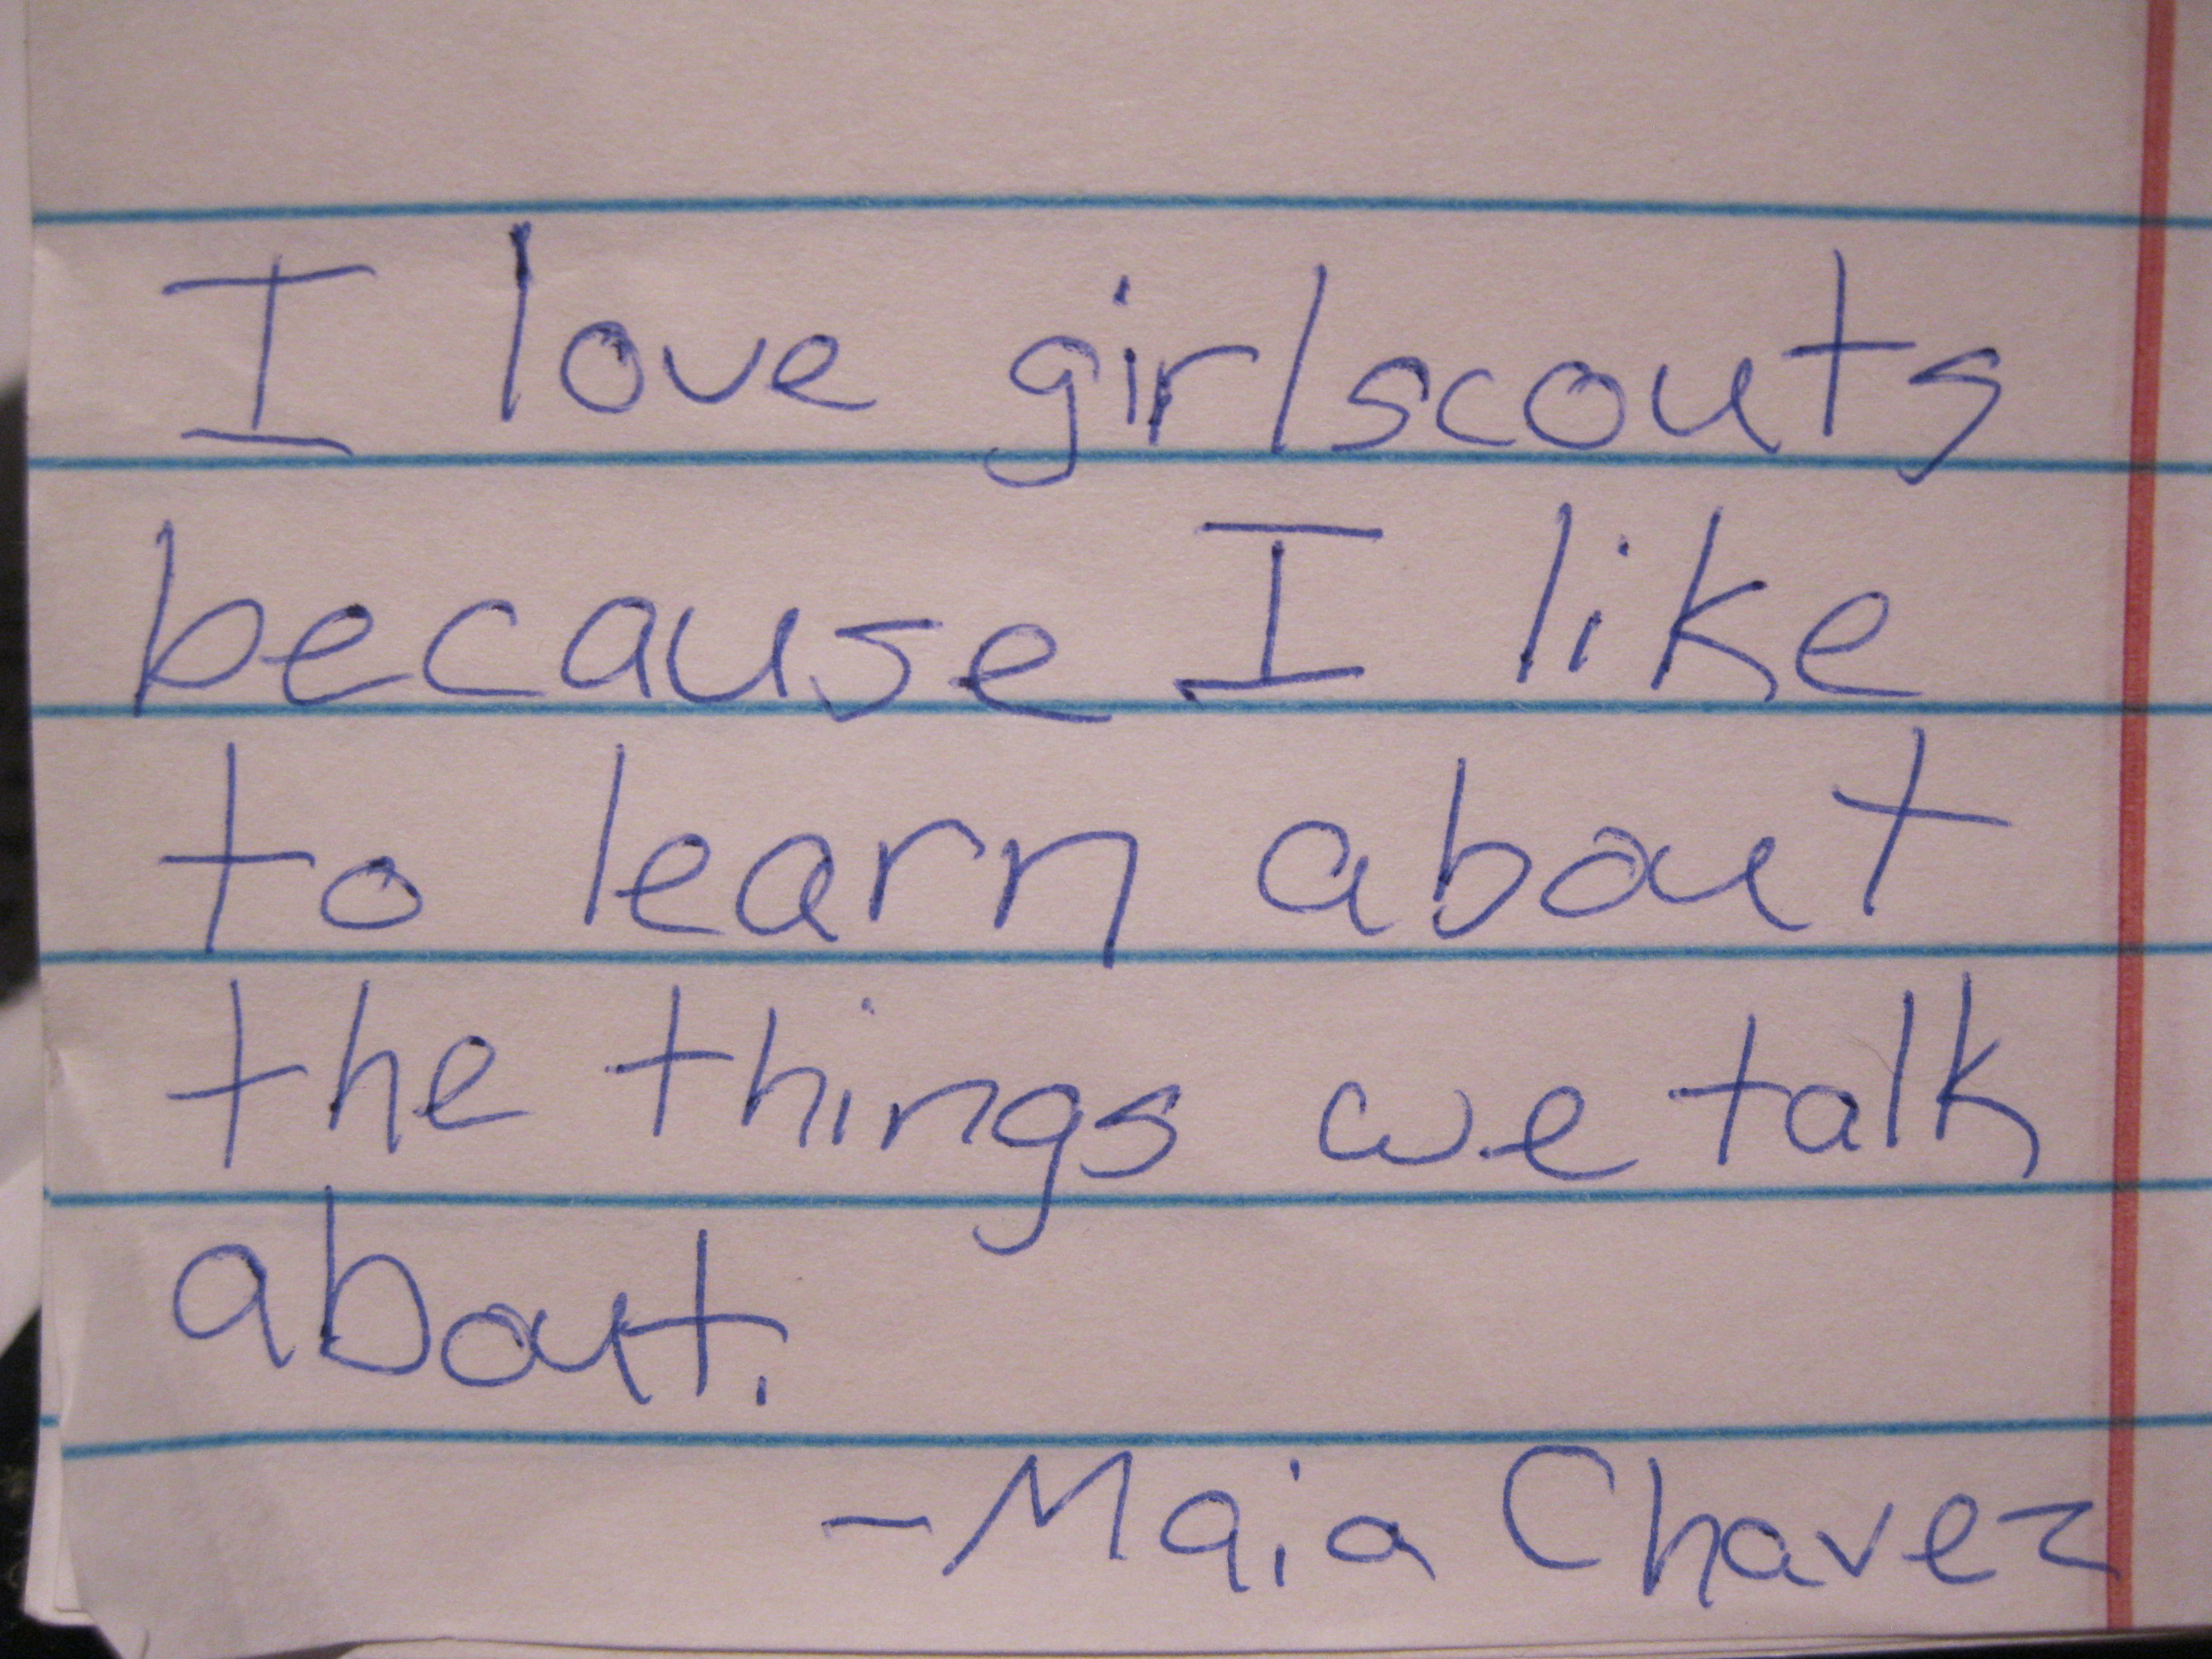 I love girlscouts
because I like
to learn about
the things we talk
about.
-Maia Chavez